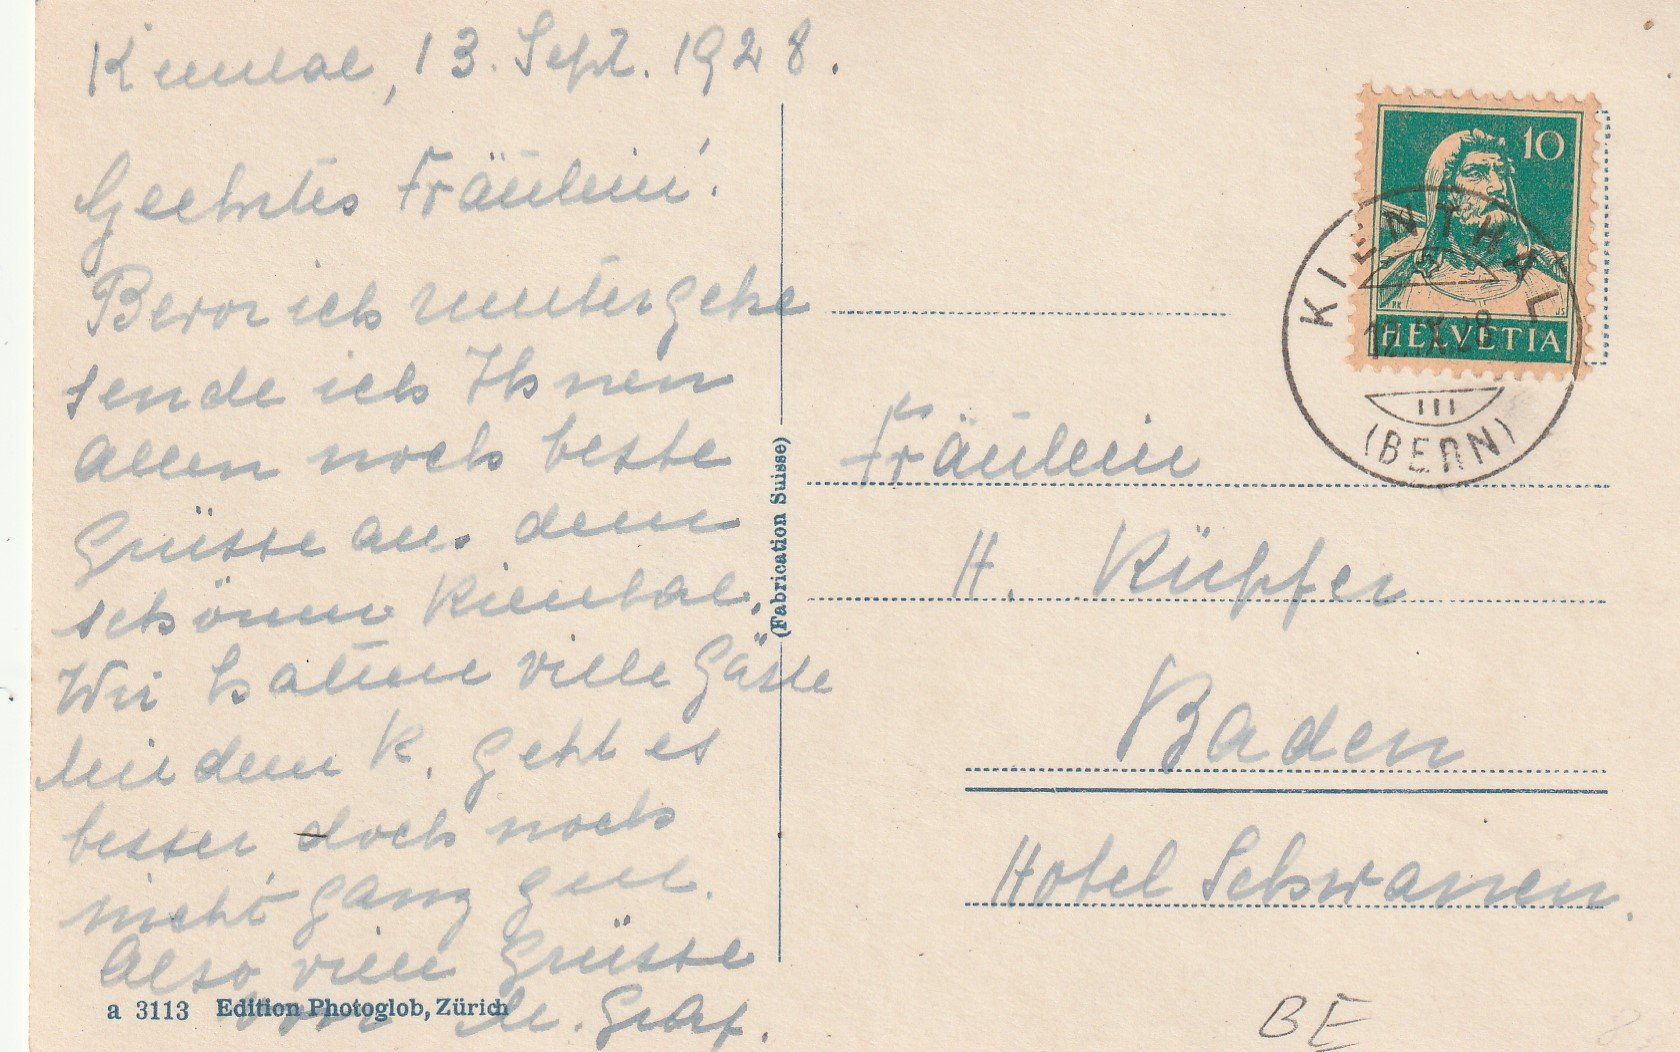 Kiental, 13. Sept. 1928.
Geehrtes Fräulein!
Bevor ich runter gehe
sende ich Ihnen
Allen noch beste
Grüsse aus dem
schönen Kiental.
Wir hatten viele Gäste
Mit dem K. geht es
besser doch noch
nicht ganz gut.
Also viele Grüsse
von M. Graf.
a 3113 Edition Photoglob, Zürich
(Fabrication Suisse)
10
HELVETIA
KIENTHAL
IX.28
III
(BERN)
Fräulein
H. Küpfer
Baden
Hotel Schwanen.
BE